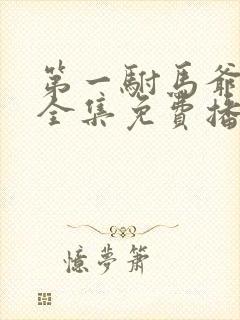 第一駙馬爺
全集免費播
憶夢簫